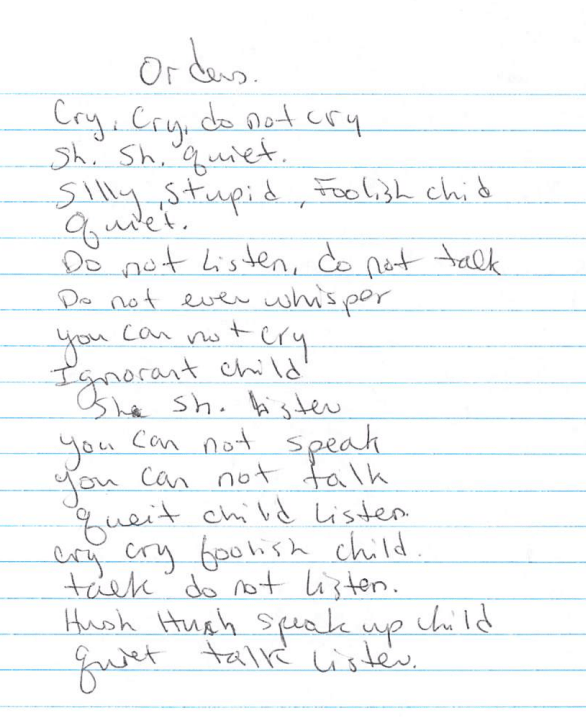 Orders.
Cry, Cry, do not cry
Sh. Sh. quiet.
Silly, Stupid, Foolish chid
Quiet.
Do not Listen, do not talk
Do not even whisper
you can not cry
Ignorant child
Sh. listen
you can not speak
you can not talk
queit child Listen.
cry cry foolish child.
talk do not listen.
Hush Hush speak up child
quiet talk Listen.